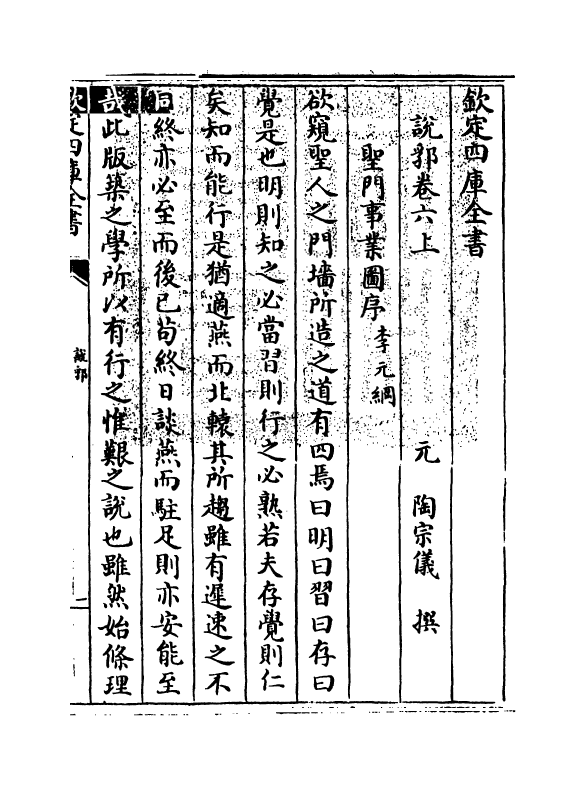 欽定四庫全書
說郛卷六上　元　陶宗儀　撰
聖門事業圖序　李元綱
欲窺聖人之門墻所造之道有四焉曰明曰習曰存曰
覺是也明則知之必當習則行之必熟若夫存覺則仁
矣知而能行是猶適燕而北轅其所趨雖有遲速之不
同終亦必至而後已茍終日談燕而駐足則亦安能至
哉此版築之學所以有行之惟艱之說也雖然始條理
欽定四庫全書
說郛
一